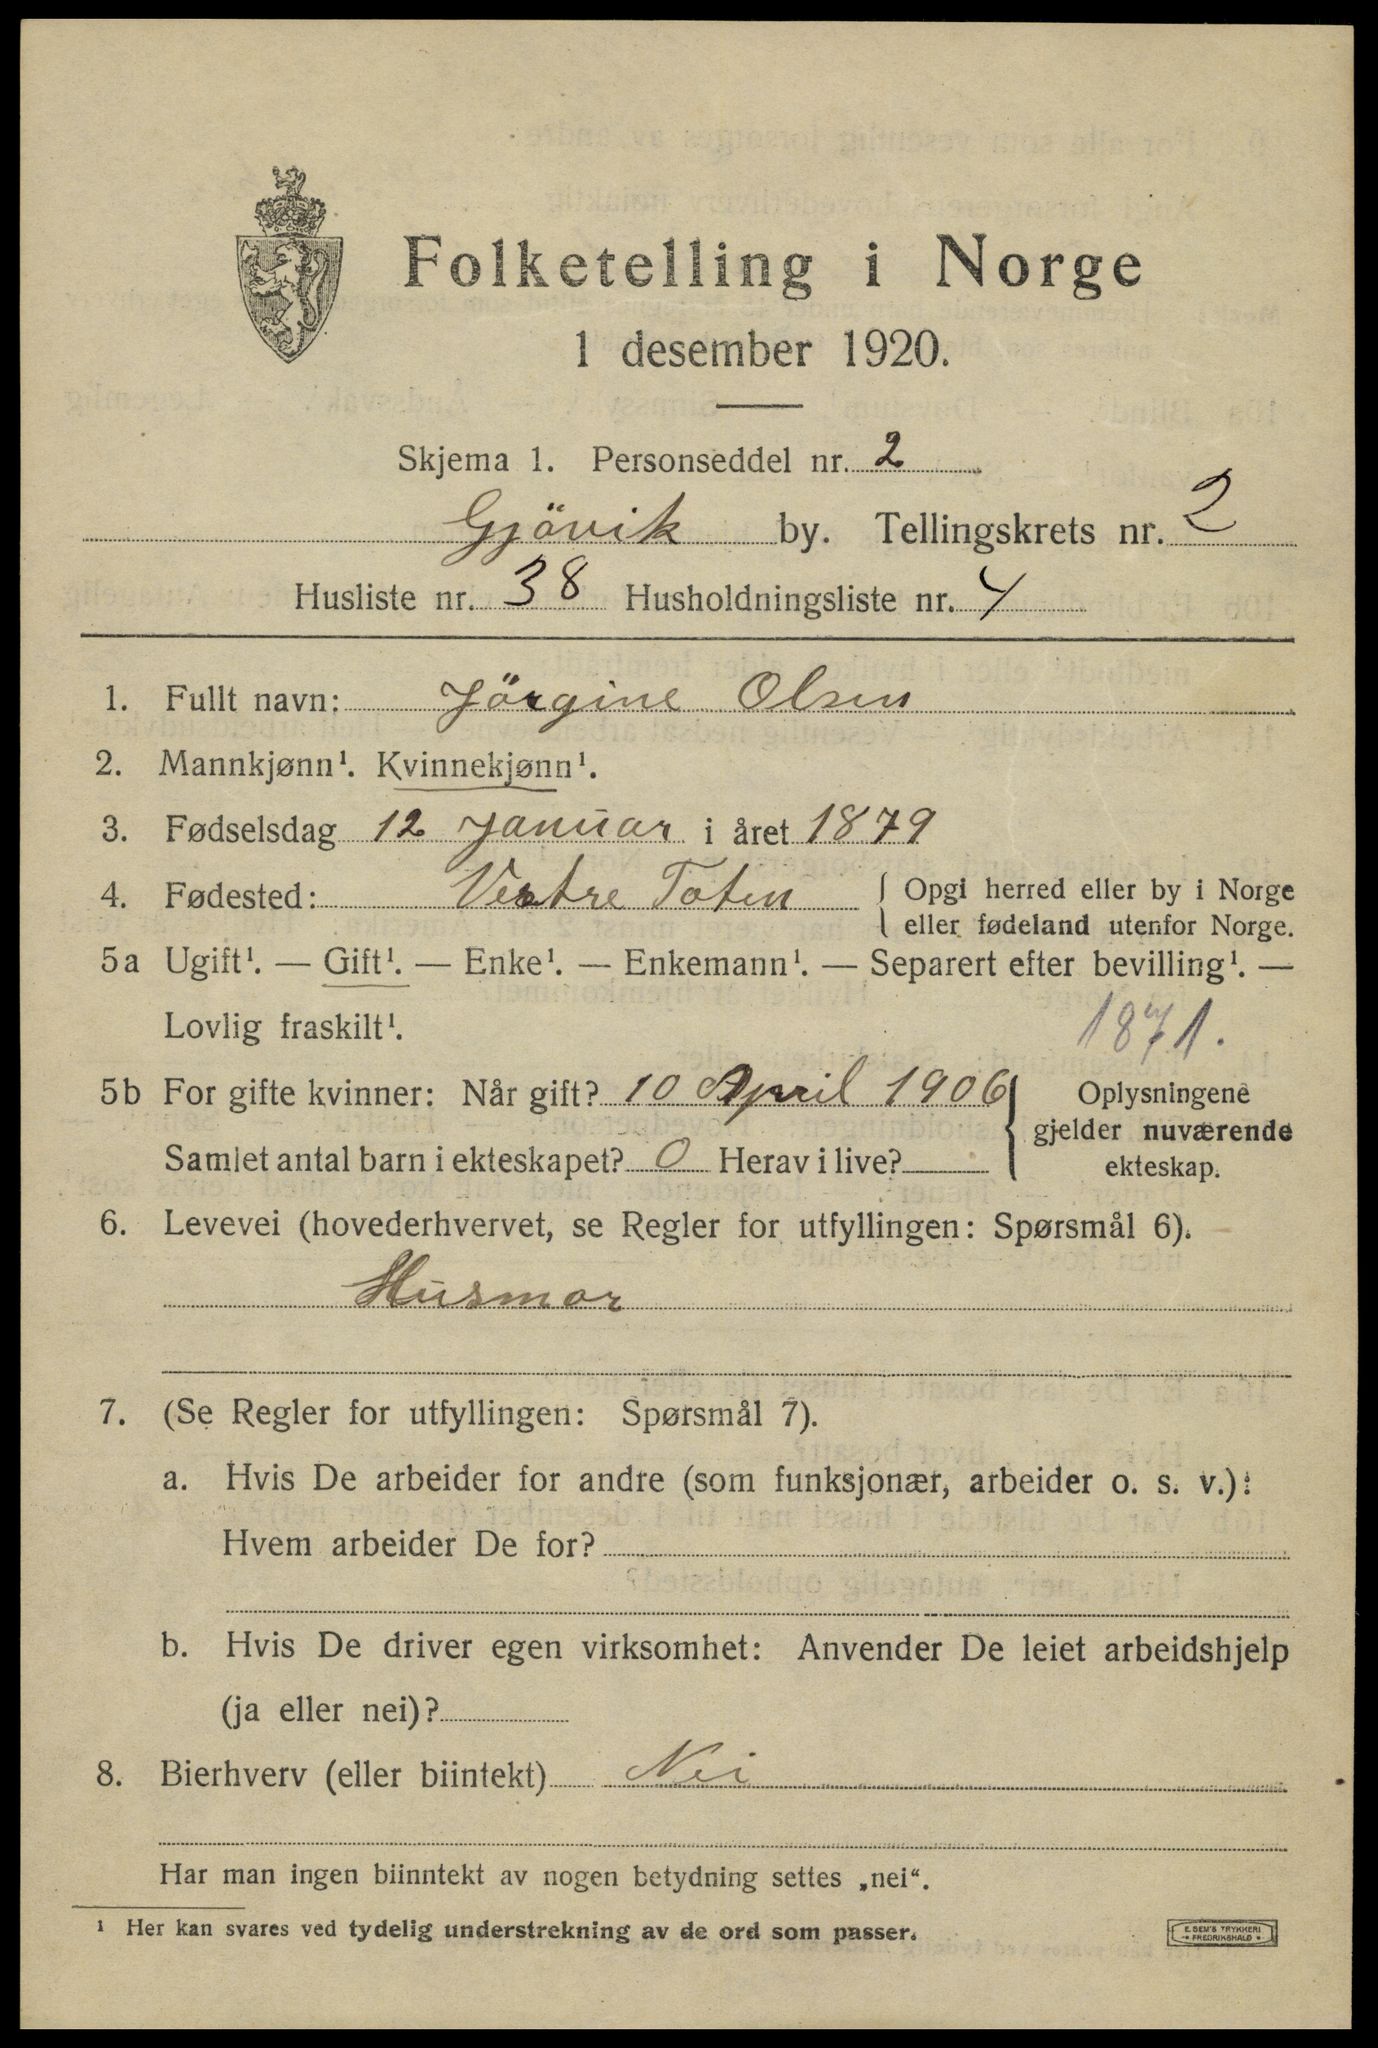 Folketelling i Norge
1 desember 1920.
Skjema 1. Personseddel nr. 2
Gjövik by. Tellingskrets nr. 2
Husliste nr. 38 Husholdningsliste nr. 4
1. Fullt navn: Jörgine Olsen
2. Mannkjønn¹. Kvinnekjønn¹.
3. Fødselsdag 12 Januar i året 1879
4. Fødested: Vestre Toten { Opgi herred eller by i Norge
eller fødeland utenfor Norge.
5a Ugift¹. — Gift¹. — Enke¹. — Enkemann¹. — Separert efter bevilling¹. —
Lovlig fraskilt¹. 1871.
5b For gifte kvinner: Når gift? 10 April 1906 { Oplysningene
gjelder nuværende
Samlet antal barn i ekteskapet? 0 Herav i live? ekteskap.
6. Levevei (hovederhvervet, se Regler for utfyllingen: Spørsmål 6).
Husmor
7. (Se Regler for utfyllingen: Spørsmål 7).
a. Hvis De arbeider for andre (som funksjonær, arbeider o. s. v.):
Hvem arbeider De for?
b. Hvis De driver egen virksomhet: Anvender De leiet arbeidshjelp
(ja eller nei)?
8. Bierhverv (eller biintekt) Nei
Har man ingen biinntekt av nogen betydning settes „nei“.
¹ Her kan svares ved tydelig understrekning av de ord som passer.
E. SEM'S TRYKKERI
FREDRIKSHALD